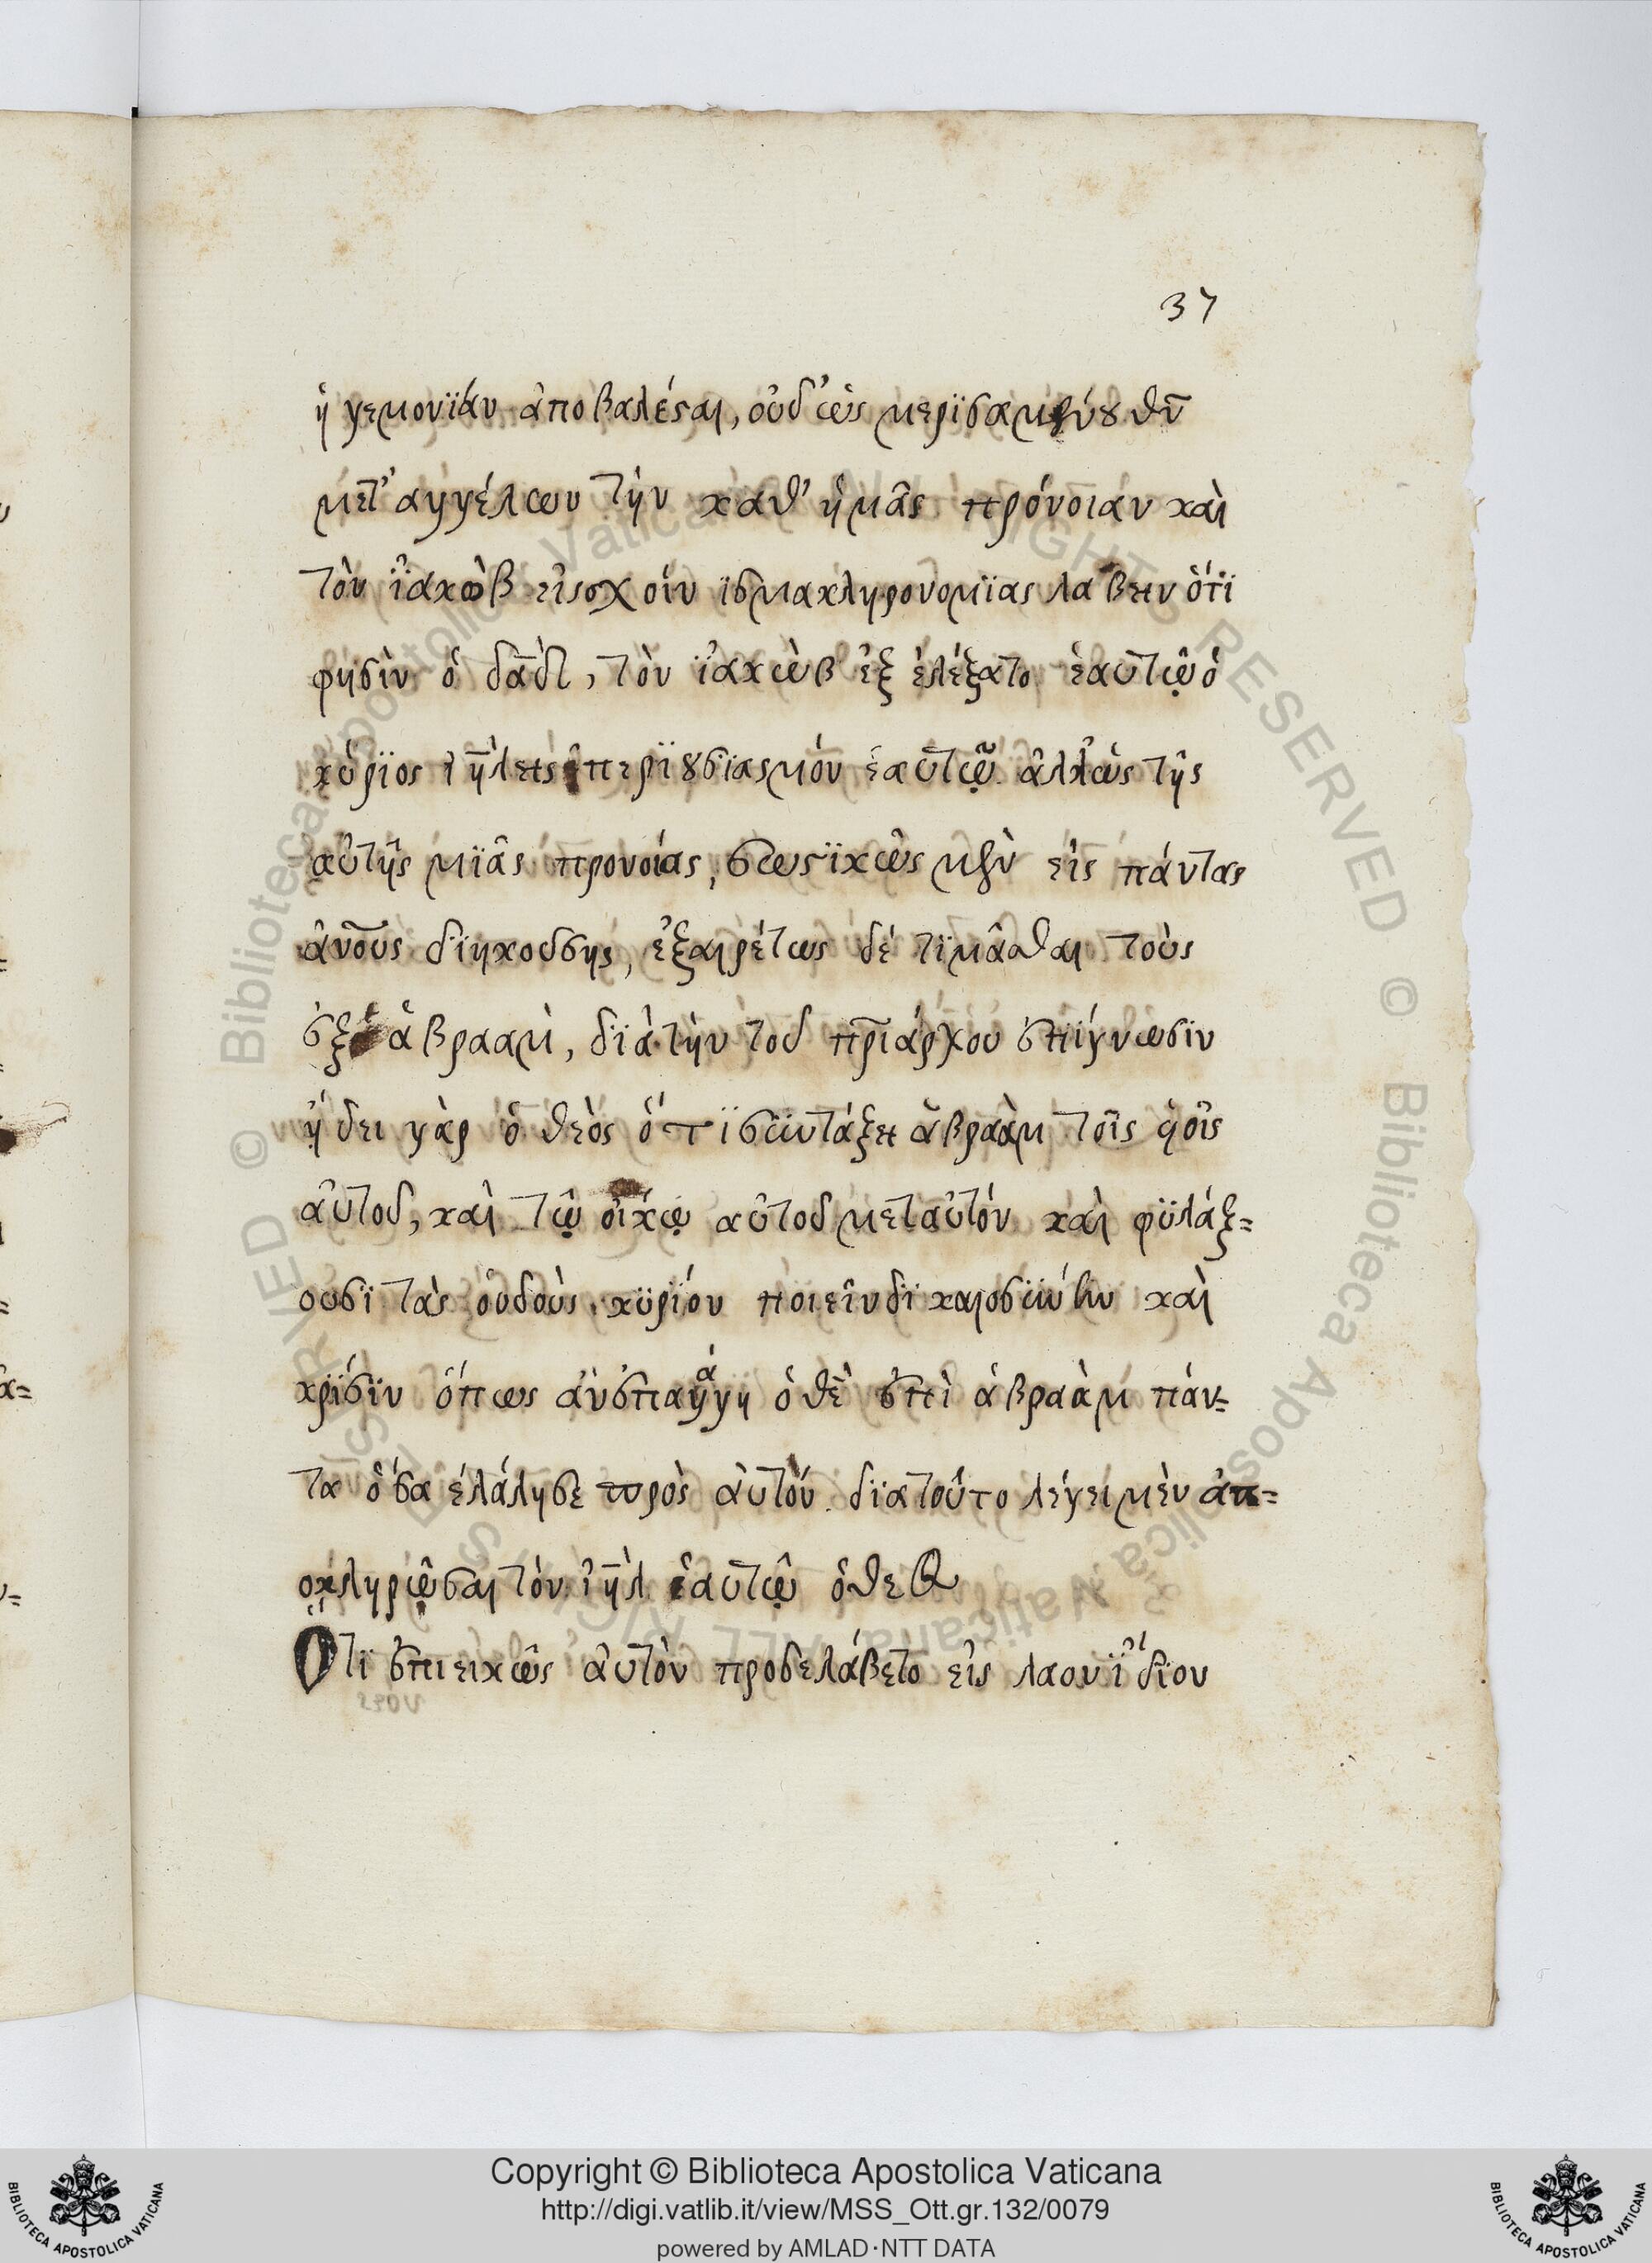 37
ἡγεμονϊάν ἀποβαλέσαι, οὐδ' ὡς μερϊσαμένου θῦ
μετ' αγγέλων τὴν καθ' ἡμᾶς πρόνοιάν καὶ
τὸν ἰακὼβ εἰς σχοίνϊσμα κληρονομϊας λαβειν ὅτϊ
φησὶν ὁ δᾱδ, τὸν ἰακὼβ ἐξελέξατο ἑαυτῷ ὁ
κύριος ιη̅λ εἰς περϊουσϊασμόν ἑαυτῷ ἀλλ' ὡς τῆς
αὐτῆς μϊᾶς προνοίας, σωστϊκῶς μὲν εἰς πάντας
ἀνο̅υς δϊηκούσης, ἐξαιρέτως δὲ τϊμᾶσθαι τοὺς
ἐξ ἀβρααμ, δϊὰ τὴν τοῦ πρ̅ιάρχου ἐπίγνωσϊν
ἤδει γὰρ ὁ θεὸς ὅτϊ συντάξει ἀβραὰμ τοῖς ϋοῖς
αὐτοῦ, καὶ τῷ οἴκῳ αὐτοῦ μεταυτόν καὶ φϋλάξ=
ουσϊ τὰς ὁυδοὺς κυρίου ποιεῖν δϊκαιοσϋνην καὶ
κρϊσϊν ὅπως ἀν ἐπαγάγη ὁ θε̅ ἐπὶ ἀβραὰμ πάν=
τα ὅσα ἐλάλησε πρὸς αὐτόν. δϊατοῦτο λέγει μὲν ἀπ=
οκληρῶσαι τὸν ιη̅λ ἑαυτῷ ὁ θεὸς
Ὅτϊ ἐπιεικῶς αὐτὸν προσελάβετο εἰς λαον ἴδϊον
Copyright © Biblioteca Apostolica Vaticana
http://digi.vatlib.it/view/MSS_Ott.gr.132/0079
powered by AMLAD·NTT DATA
BIBLIOTECA APOSTOLICA VATICANA
BIBLIOTECA APOSTOLICA VATICANA